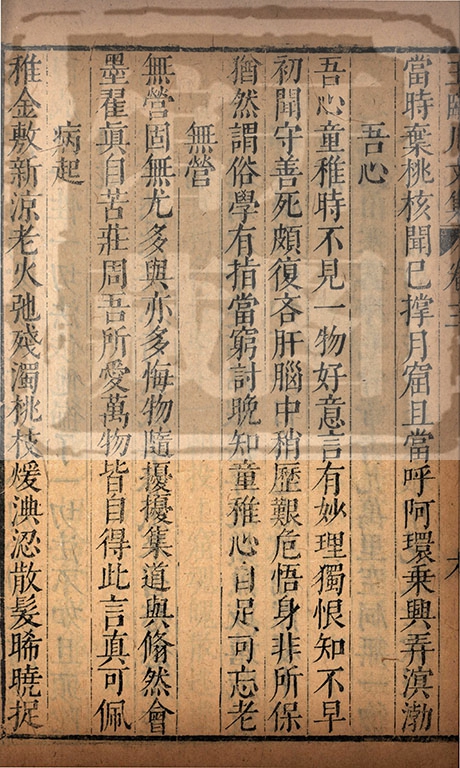 王臨川文集 卷三 六
當時棄桃核聞已撑月窟且當呼阿環乗興弄溟渤
吾心
吾心童稚時不見一物好意言有妙理獨恨知不早
初聞守善死頗復吝肝腦中稍歷艱危悟身非所保
猶然謂俗學有指當窮討晚知童稚心自足可忘老
無營
無營固無尤多與亦多悔物隨擾擾集道與翛然會
墨翟真自苦莊周吾所愛萬物皆自得此言真可佩
病起
稚金敷新涼老火灺殘濁桃枝煖淟涊散髮晞曉捉